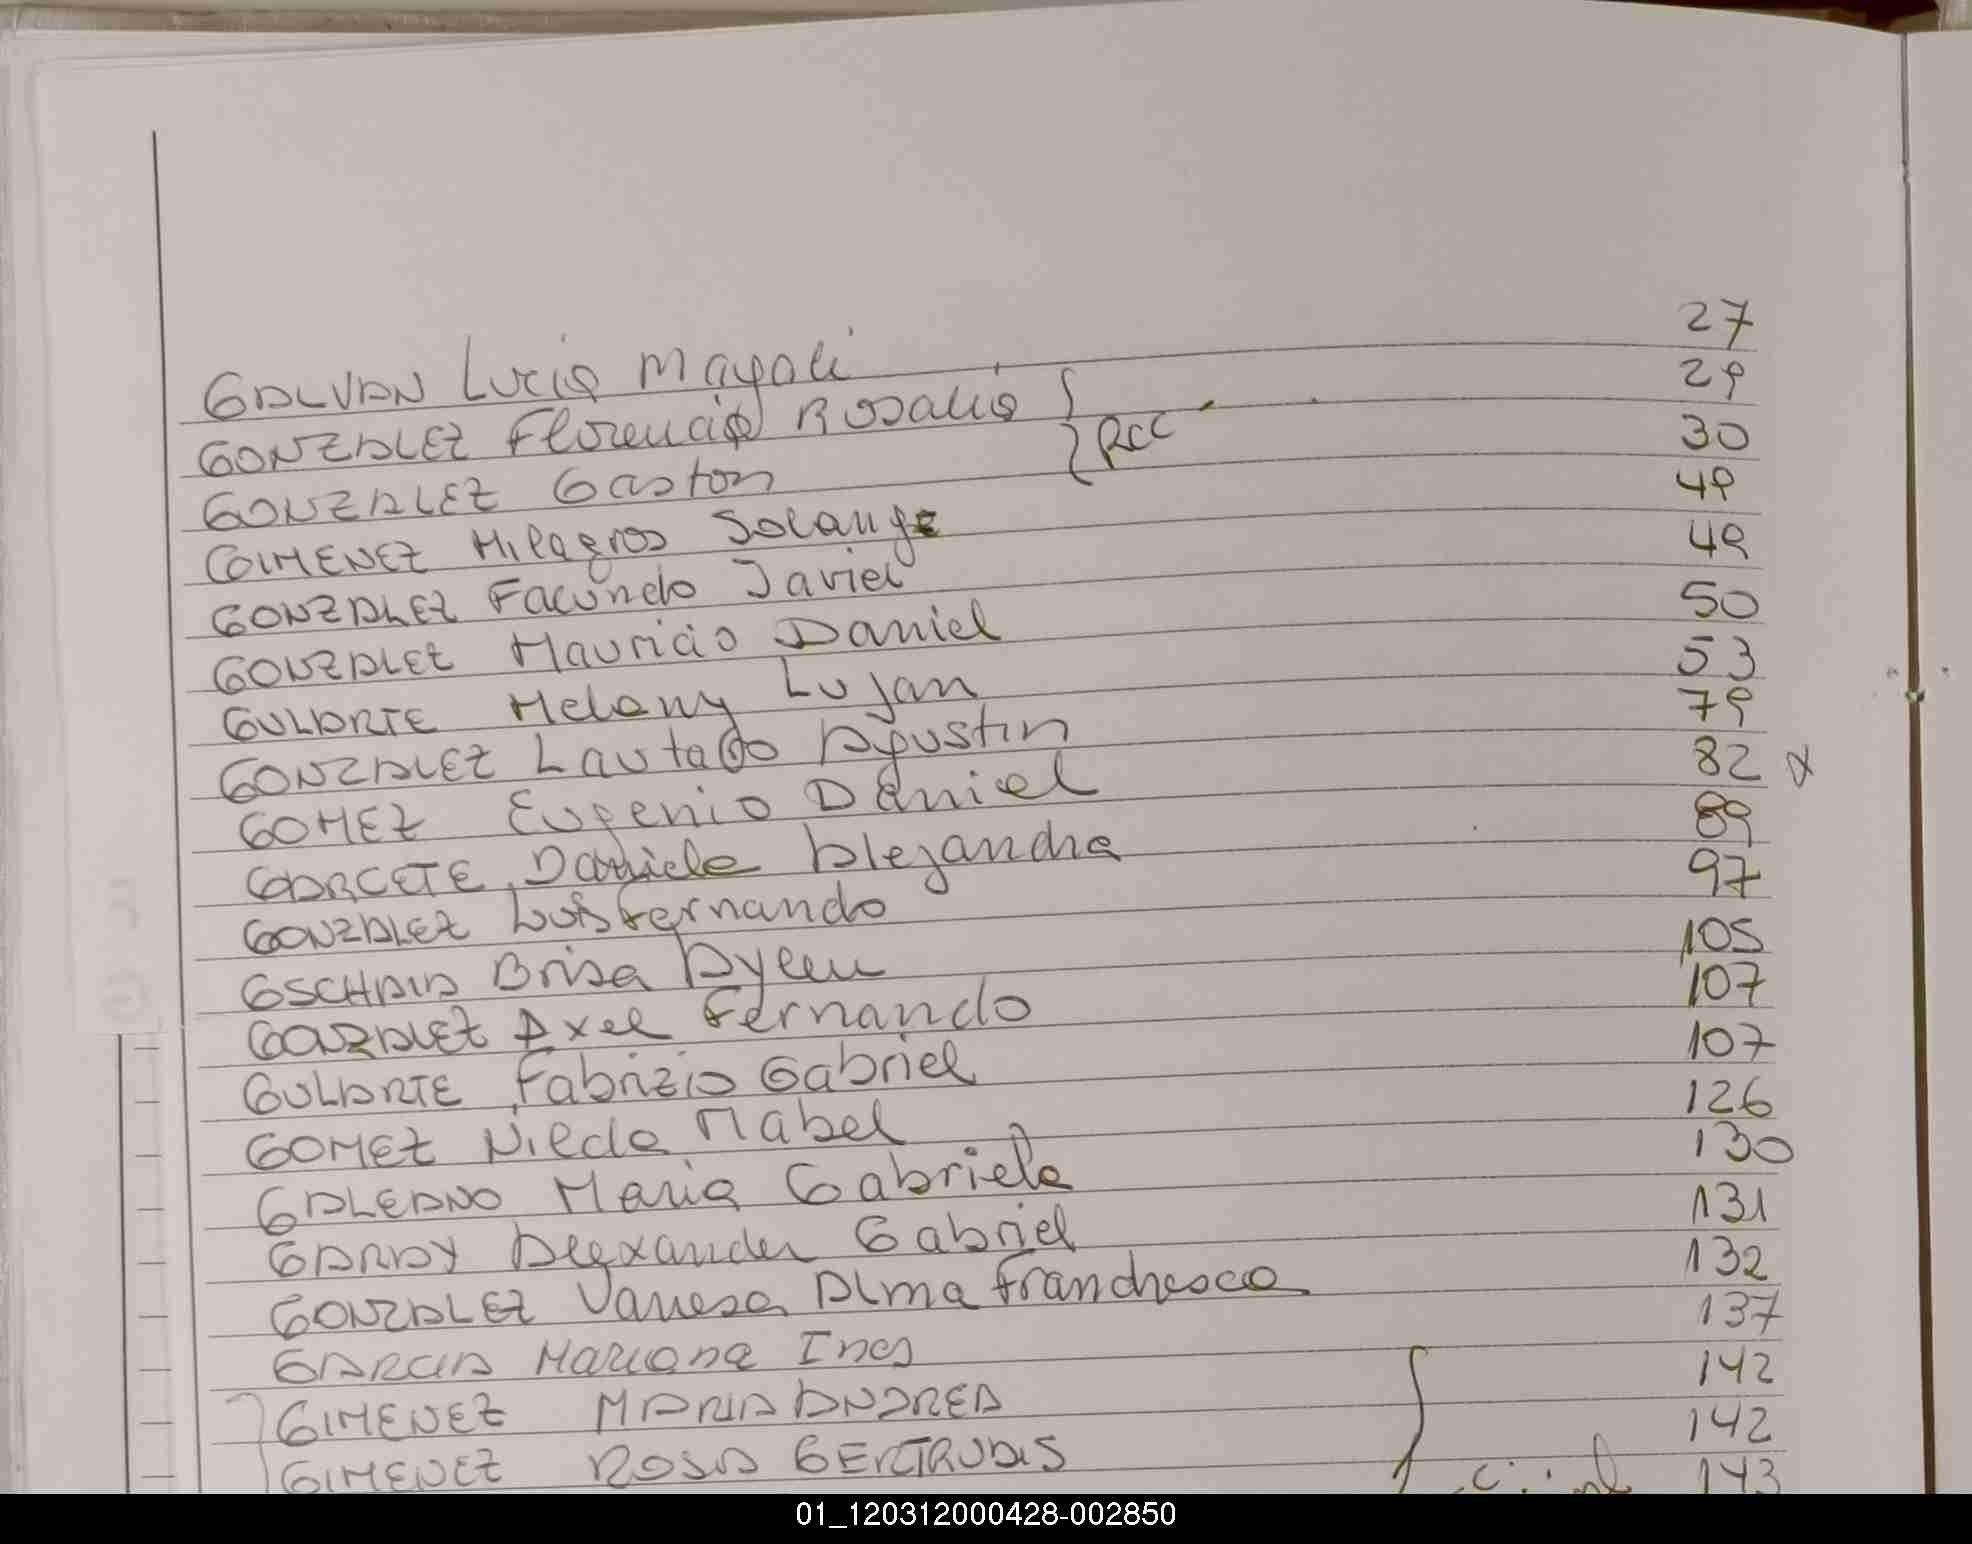 GALVAN Lucia Magali 27
GONZALEZ Florencia Rosalia 29
GONZALEZ Gaston } RCC 30
GIMENEZ Milagros Solange 49
GONZALEZ Facundo Javier 49
GONZALEZ Mauricio Daniel 50
GULARTE Melany Lujan 53
GONZALEZ Lautaro Agustin 79
GOMEZ Eugenio Daniel 82
GARCETE Daniela Alejandra 89
GONZALEZ Luis Fernando 97
GSCHAIA Brisa Aylen 105
GONZALEZ Axel Fernando 107
GULARTE Fabrizio Gabriel 107
GOMEZ Nilda Mabel 126
GALEANO Maria Gabriela 130
GARAY Alexander Gabriel 131
GONZALEZ Vanesa Alma Franchesca 132
GARCIA Mariana Ines 137
GIMENEZ MARIA ANDREA 142
GIMENEZ ROSA GERTRUDIS 142
143
01_120312000428-002850